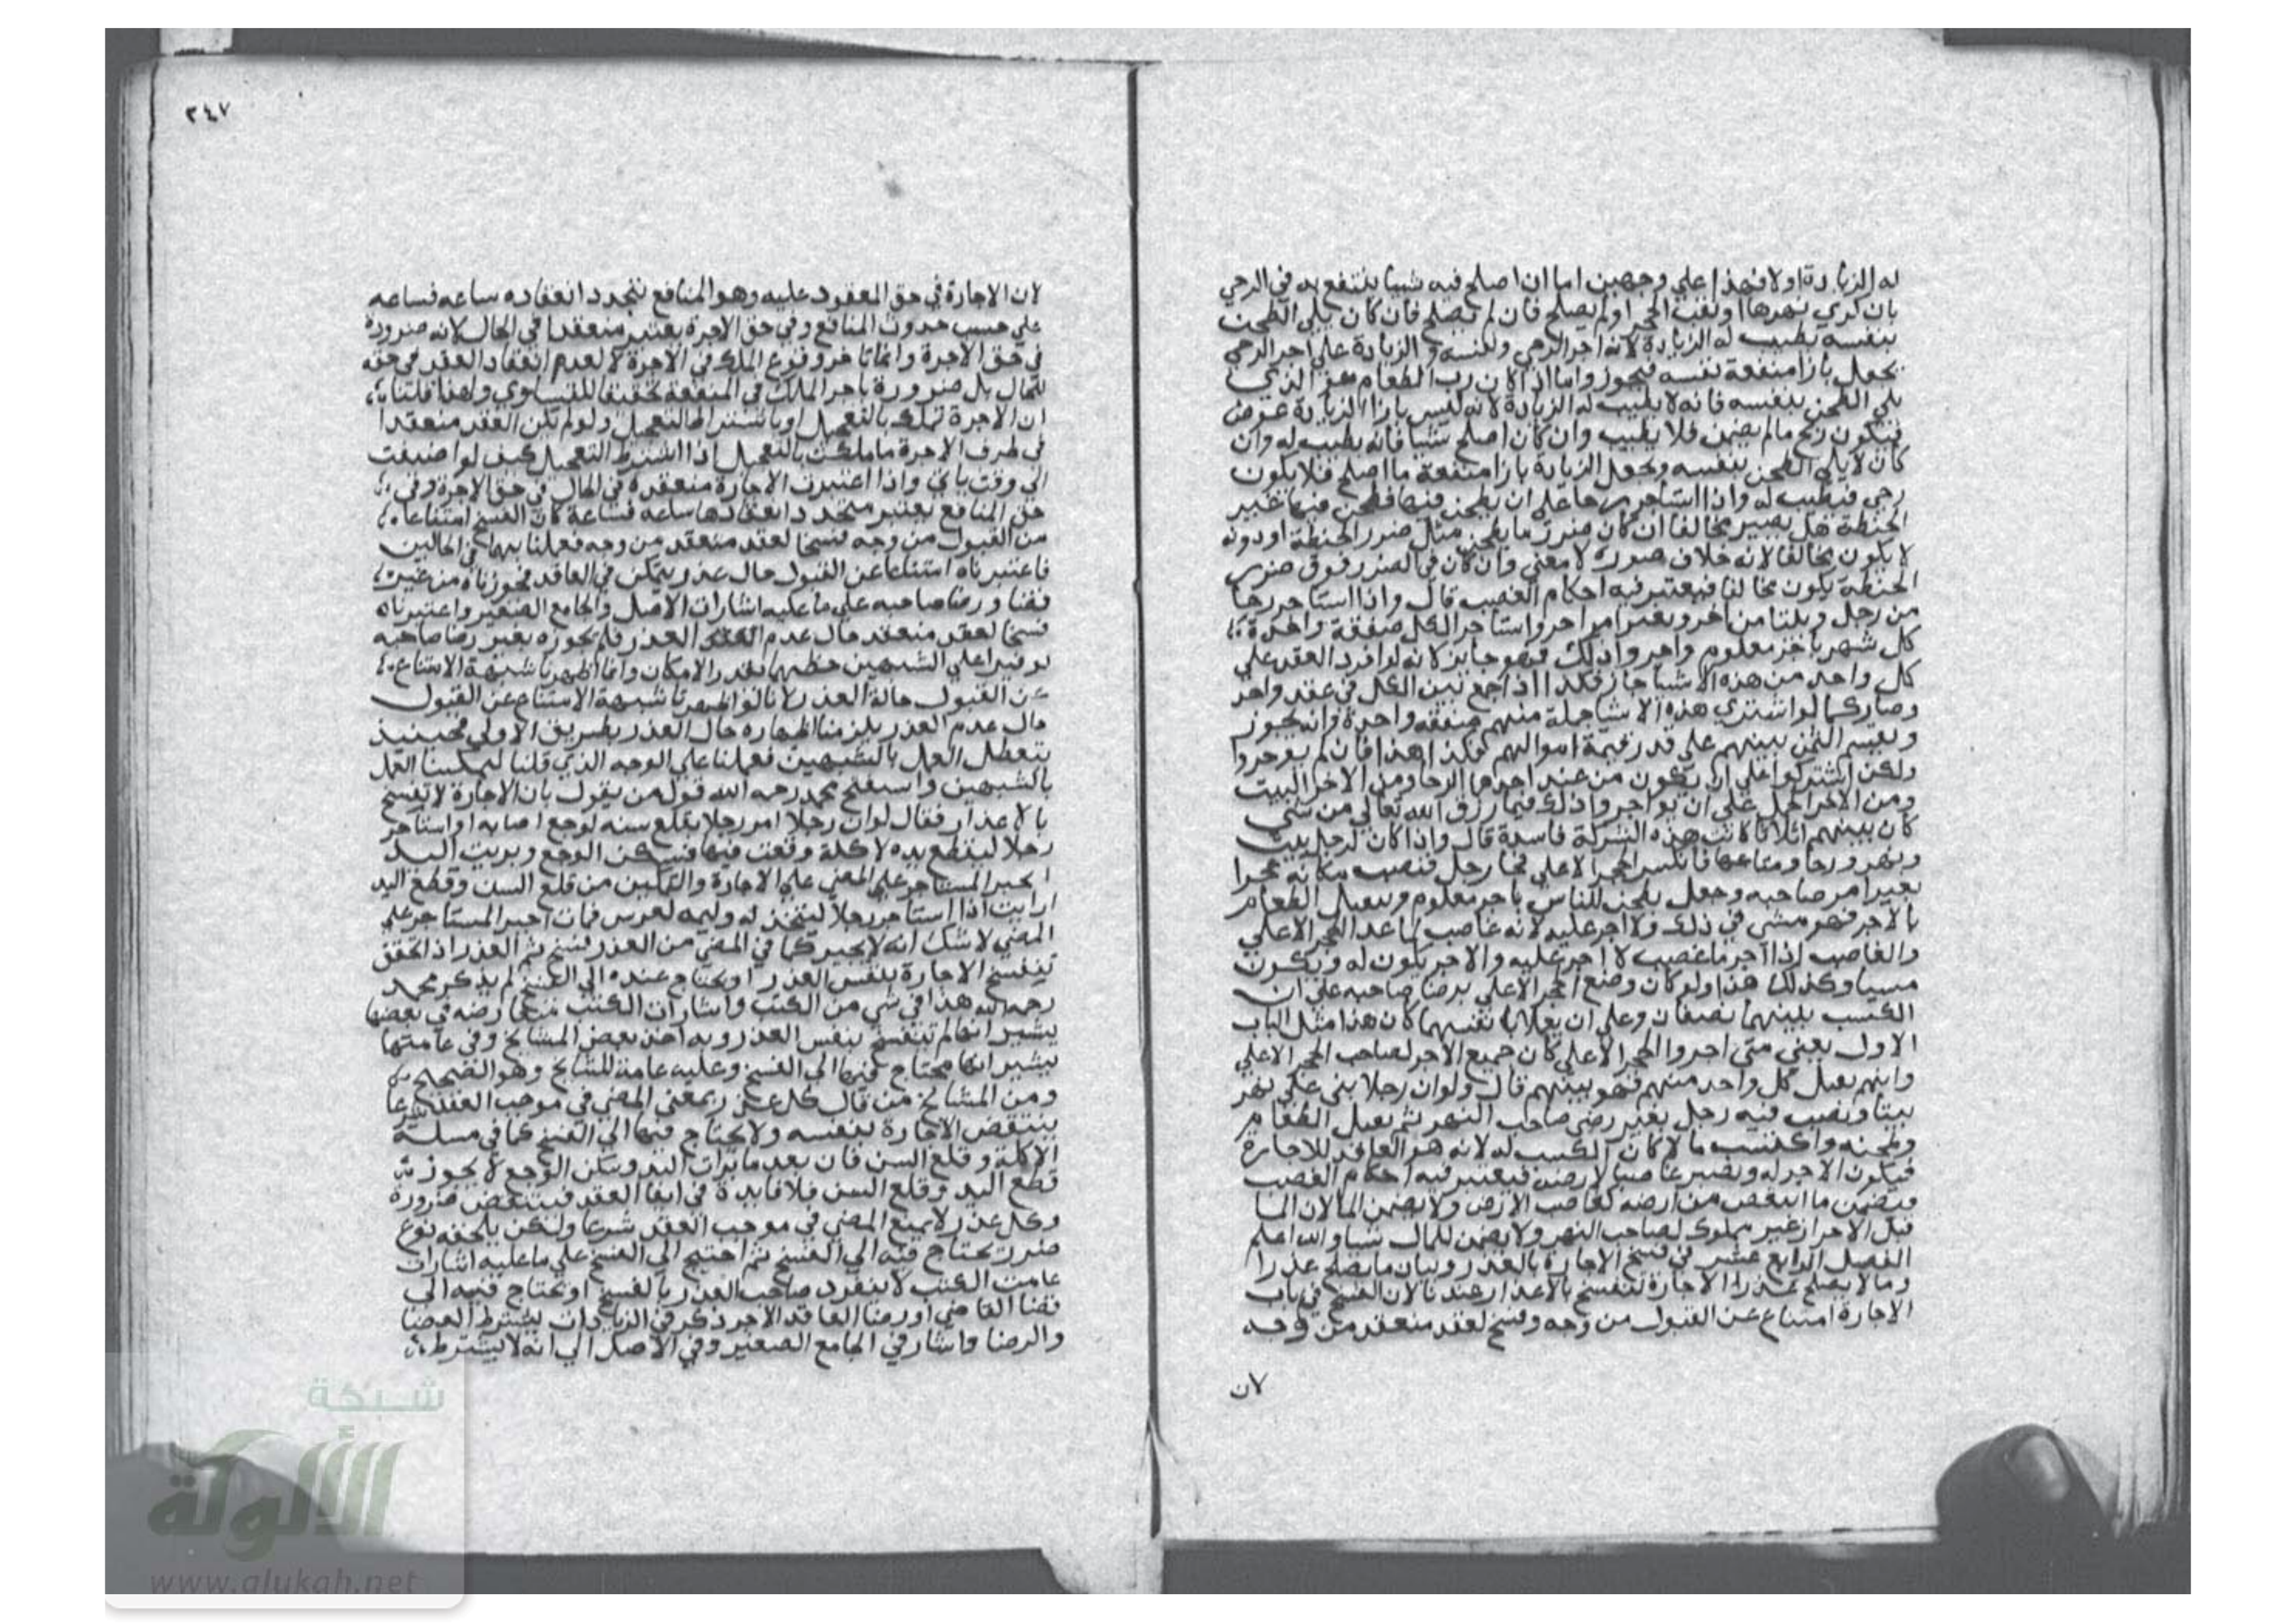 له الزيادة اولا فهذا علي وجهين اما ان اصلح فيه شيئا ينتفع به في الرحي
بان كري نهرها او نقب الحجر اولم يصلح فان لم يصلح فان كان يلي الطحن
بنفسه يطيب له الزيادة لانه اجر الرحي ونفسه والزيادة علي اجر الرحي
يجعل بازا منفعة نفسه فيجوز واما اذا كان رب الطعام هو الذي
يلي الطحن بنفسه فانه لا يطيب له الزيادة لانه ليس بازا الزيادة عوض
فيكون ربح مالم يضمن فلا يطيب وان كان اصلح شيئا فانه يطيب له وان
كان لا يلي الطحن بنفسه ويجعل الزيادة بازا منفعة ما اصلح فلا يكون
ربحي فيطيب له واذا استاجر رحا علي ان يطحن فيها فطحن فيها غير
الحنطة هل يصير مخالفا ان كان ضرر ما يطحن مثل ضرر الحنطة اودونه
لا يكون مخالفا لانه خلاف صورة لا معني وان كان في الضرر فوق ضرر
الحنطة يكون مخالفا فيعتبر فيه احكام الغصب قال واذا استاجر رحا
من رجل وبيتا من اخر وبعيرا من اخر واستاجر الكل صفقة واحدة
كل شهر باجر معلوم واجر وا ذلك فهو جايز لانه لو افرد العقد علي
كل واحد من هذه الاشيا جاز فكذا اذا جمع بين الكل في عقد واحد
وصار كما لو اشتري هذه الاشيا جملة منهم صفقة واحدة وانه يجوز
ويقسم الثمن بينهم علي قدر قيمة اموالهم فكذا هذا فان لم يوجروا
ولكن اشتركوا علي ان يكون من عند احدهم الرحا ومن الاخر البيت
ومن الاخر الجمل علي ان يواجر وا ذلك فما رزق الله تعالي من شي
كان بينهم اثلاثا كانت هذه الشركة فاسدة قال واذا كان لرجل بيت
ونهر ورحا ومتاعها فانكسر الحجر الاعلي فجا رجل فنصب مكانه حجرا
بغير امر صاحبه وجعل يطحن للناس باجر معلوم ويتقبل الطعام
بالاجر فهو مسي في ذلك ولا اجر عليه لانه غاصب لما عدا الحجر الاعلي
والغاصب اذا اجر ما غصب لا اجر عليه والاجر يكون له ويكون
مسيا وكذلك هذا ولو كان وضع الحجر الاعلي برضا صاحبه علي ان
الكسب بينهما نصفان وعلي ان يعملا بانفسهما كان هذا مثل الباب
الاول يعني متي اجروا الحجر الاعلي كان جميع الاجر لصاحب الحجر الاعلي
وايهم يعمل كل واحد منهم فهو بينهم قال ولو ان رجلا بني علي نهر
بيتا ونصب فيه رجل بغير رضي صاحب النهر ثم يقبل الطعام
وطحنه واكتسب مالا كان الكسب له لانه هو العاقد للاجارة
فيكون الاجر له ويصير غاصبا لارضه فيعتبر فيه احكام الغصب
ويضمن ما انتقص من ارضه كغاصب الارض ولا يضمن الما لان الما
قبل الاحراز غير مملوك لصاحب النهر ولا يضمن للمال شيا والله اعلم
الفصل الرابع عشر في فسخ الاجارة بالعذر وبيان ما يصلح عذرا
وما لا يصلح عذرا الاجارة تنفسخ بالاعذار عندنا لان الفسخ في باب
الاجارة امتناع عن القبول من وجه وفسخ لعقد منعقد من وجه
لان
٣٤٧
لان الاجارة في حق المعقود عليه وهو المنافع يتجدد انعقاده ساعه فساعه
علي حسب حدوث المنافع وفي حق الاجرة يعتبر منعقدا في الحال لانه ضرورة
في حق الاجرة وانما تاخر وقوع الملك في الاجرة لا لعدم انعقاد العقد في حقه
للحال بل ضرورة تاخر الملك في المنفعة تحقيقا للتساوي ولهذا قلنا
ان الاجرة تملك بالتعجيل او باشتراط التعجيل ولو لم يكن العقد منعقدا
في طرف الاجرة ما ملكت بالتعجيل اذا اشترط التعجيل كيف لو اضيفت
الي وقت ياتي واذا اعتبرت الاجارة منعقدة في الحال في حق الاجرة وفي
حق المنافع يعتبر متجددا انعقادها ساعه فساعة كان الفسخ امتناعا
من القبول من وجه فسخا لعقد منعقد من وجه فعلنا بهما في الحالين
فاعتبرناه امتناعا عن القبول حال عذر يتمكن في العاقد فجوزناه من غير
قضا ورضا صاحبه علي ما عليه اشارات الاصل والجامع الصغير واعتبرناه
فسخا لعقد منعقد حال عدم العذر فلم نجوزه بغير رضا صاحبه
توفيرا علي الشبهين حظهما بقدر الامكان وانما اظهرنا شبهة الامتناع
عن القبول حالة العذر لانا لو اظهرنا شبهة الامتناع عن القبول
حال عدم العذر يلزمنا اظهاره حال العذر بطريق الاولي فحينيذ
يتعطل العمل بالشبهين فعملنا علي الوجه الذي قلنا ليمكننا العمل
بالشبهين واستفتح محمد رحمه الله قول من يقول بان الاجارة لا تفسخ
بالاعذار فقال لو ان رجلا امر رجلا بقلع سنه لوجع اصابه او استاجر
رجلا ليقطع يده لاكلة وقعت فيها فسكن الوجع وبريت اليد
ايجبر المستاجر علي المضي علي الاجارة والتمكين من قلع السن وقطع اليد
ارايت اذا استاجر رجلا ليتخذ له وليمه لعرس فماتت ايجبر المستاجر علي
المضي لا شك انه لا يجبر كما في المضي من العذر فسخ ثم العذر اذا تحقق
تنفسخ الاجارة بنفس العذر او يحتاج عنده الي الفسخ لم يذكر محمد
رحمه الله هذا في شي من الكتب واشارات الكتب متعارضه في بعضها
يشير انها تنفسخ بنفس العذر وبه اخذ بعض المشايخ وفي عامتها
يشير انها يحتاج فيها الي الفسخ وعليه عامة المشايخ وهو الصحيح
ومن المشايخ من قال كل عذر يمنع المضي في موجب العقد شرعا
ينتقض الاجارة بنفسه ولا يحتاج فيها الي الفسخ كما في مسلة
الاكلة وقلع السن فان بعد ما برات اليد وسكن الوجع لا يجوز
قطع اليد وقلع السن فلا فايدة في ابقا العقد فينتقض ضرورة
وكل عذر لا يمنع المضي في موجب العقد شرعا ولكن يلحقه نوع
ضرر يحتاج فيه الي الفسخ ثم احتيج الي الفسخ علي ما عليه اشارات
عامت الكتب لا ينفرد صاحب العذر بالفسخ او يحتاج فيه الي
قضا القاضي او رضا العاقد الاخر ذكر في الزيادات يشترط القضا
والرضا واشار في الجامع الصغير وفي الاصل الي انه لا يشترط
شبكة
الألوكة
www.alukah.net